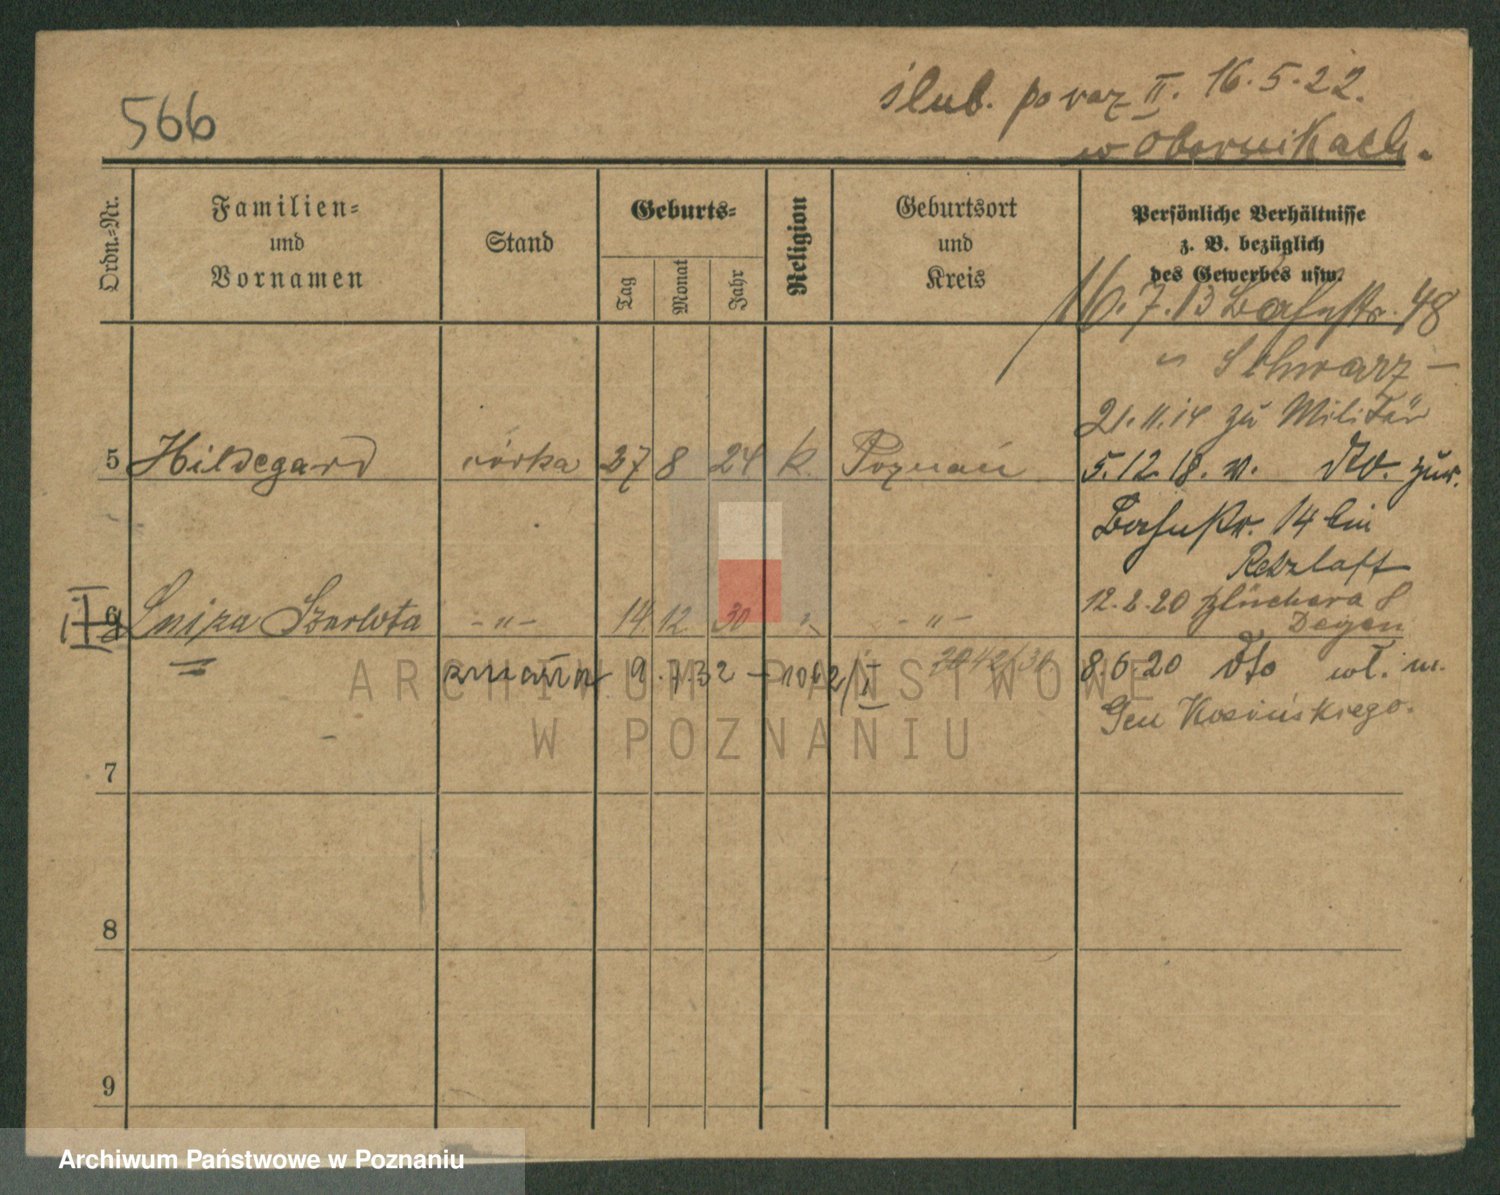 566
ślub. po raz II. 16.5.22.
w Obornikach.
Ordn.-Nr.
Familien-
und
Vornamen
Stand
Geburts-
Tag
Monat
Jahr
Religion
Geburtsort
und
Kreis
Persönliche Verhältnisse
z. B. bezüglich
des Gewerbes usw.
16.7.13 Bahnstr. 48
Schwarz
21.11.14 zu Militär
5 Hildegard córka 27 8 24 k. Poznań
5.12.18. v. zur.
Bahnstr. 14 bei
Retzlaff
12.2.20 Blüchera 8
Degen
6 Luiza Szarlota -"- 14 12 30 " -"-
zmarła 9.7.32 - 1062/II
2042/30
8.6.20 wł. m.
Gen Kosińskiego.
7
8
9
ARCHIWUM PAŃSTWOWE
W POZNANIU
Archiwum Państwowe w Poznaniu